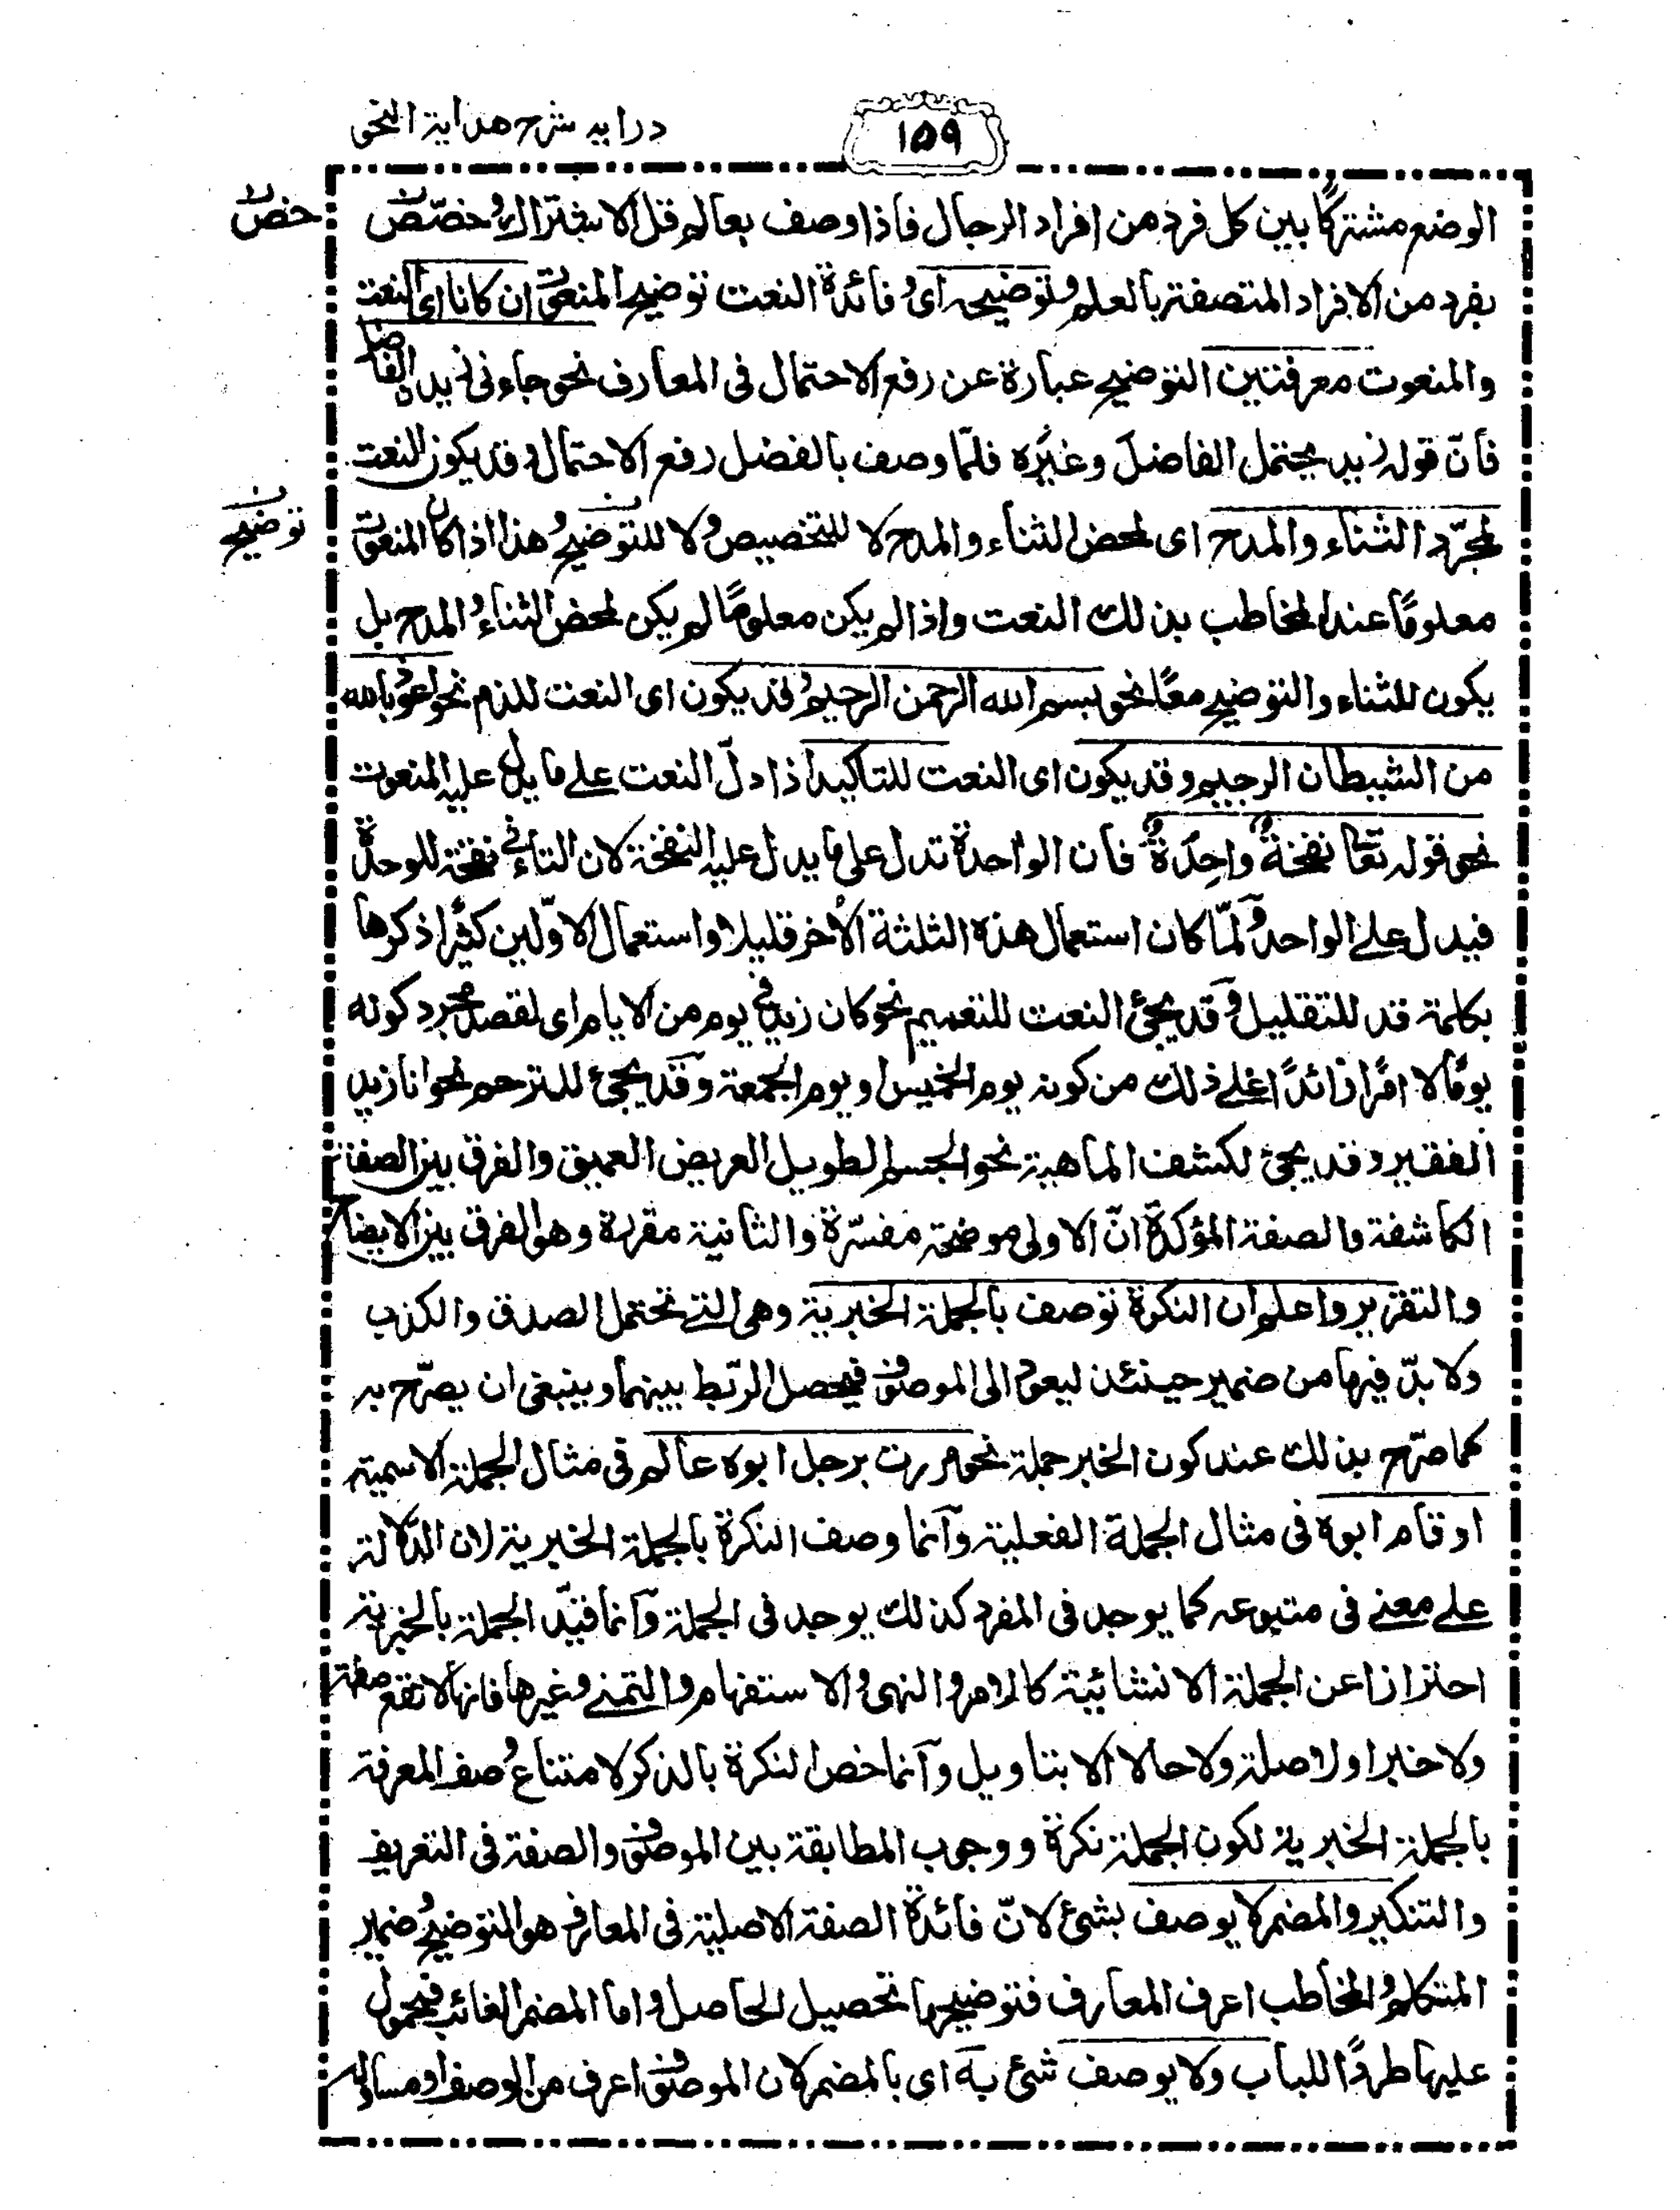 درايه شرح هداية النحو
١٥٩
الوضع مشتركًا بين كل فرد من افراد الرجال فاذا وصف بعالم قل الاشتراك وخصّص
خصص
بفرد من الافراد المتصفة بالعلم وتوضيحه اى فائدة النعت توضيح المنعوت ان كانا اى النعت
والمنعوت معرفتين التوضيح عبارة عن رفع الاحتمال فى المعارف نحو جاءنى زيد الفاضل
فانّ قوله زيد يحتمل الفاضلَ وغيرَه فلمّا وصف بالفضل رفع الاحتمال وقد يكون النعت
لمجرّد الثناء والمدح اى لمحض الثناء والمدح لا للتخصيص ولا للتوضيح وهذا اذا كان المنعوت
توضيح
معلومًا عند المخاطب بذلك النعت واذا لم يكن معلومًا لم يكن لمحض الثناء والمدح بل
يكون للثناء والتوضيح معًا نحو بسم الله الرحمن الرحيم وقد يكون اى النعت للذم نحو اعوذ بالله
من الشيطان الرجيم وقد يكون اى النعت للتاكيد اذا دلّ النعت على ما يدل عليه المنعوت
نحو قوله تعا نفخةٌ واحِدَةٌ فان الواحدة تدل على ما يدل عليه النفخة لان التاء فى نفخة للوحدة
فيدل على الواحد ولمّا كان استعمال هذه الثلثة الأخر قليلا واستعمال الاوّلين كثيرا ذكرها
بكلمة قد للتقليل وقد يجئ النعت للتعميم نحو كان زيد فى يوم من الايام اى لقصد مجرد كونه
يومًا لا امرًا زائدًا على ذلك من كونه يوم الخميس او يوم الجمعة وقد يجئ للترحم نحو انا زيد
الفقير وقد يجئ لكشف الماهية نحو الجسم الطويل العريض العميق والفرق بين الصفة
الكاشفة والصفة المؤكدة انّ الاولى موضحة مفسّرة والثانية مقررة وهو الفرق بين الايضاح
والتقرير واعلم ان النكرة توصف بالجملة الخبرية وهى التى تحتمل الصدق والكذب
ولا بدّ فيها من ضمير حينئذ ليعود الى الموصوف فيحصل الربط بينهما وينبغى ان يصرّح به
كما صرّح بذلك عند كون الخبر جملة نحو مررت برجل ابوه عالم فى مثال الجملة الاسمية
او قام ابوه فى مثال الجملة الفعلية وانما وصف النكرة بالجملة الخبرية لان الدلالة
على معنى فى متبوعه كما يوجد فى المفرد كذلك يوجد فى الجملة وانما قيّد الجملة بالخبرية
احترازا عن الجملة الانشائية كالامر والنهى والاستفهام والتمنى وغيرها فانها لا تقع صفة
ولا خبرا ولا صلة ولا حالا الا بتاويل وانما خص النكرة بالذكر لامتناع وصف المعرفة
بالجملة الخبرية لكون الجملة نكرة ووجوب المطابقة بين الموصوف والصفة فى التعريف
والتنكير والمضمر لا يوصف بشئ لانّ فائدة الصفة الاصلية فى المعارف هو التوضيح وضمير
المتكلم والمخاطب اعرف المعارف فتوضيحها تحصيل الحاصل واما المضمر الغائب فمحمول
عليها طردًا للباب ولا يوصف شئ به اى بالمضمر لان الموصوف اعرف من الوصف او مساو له